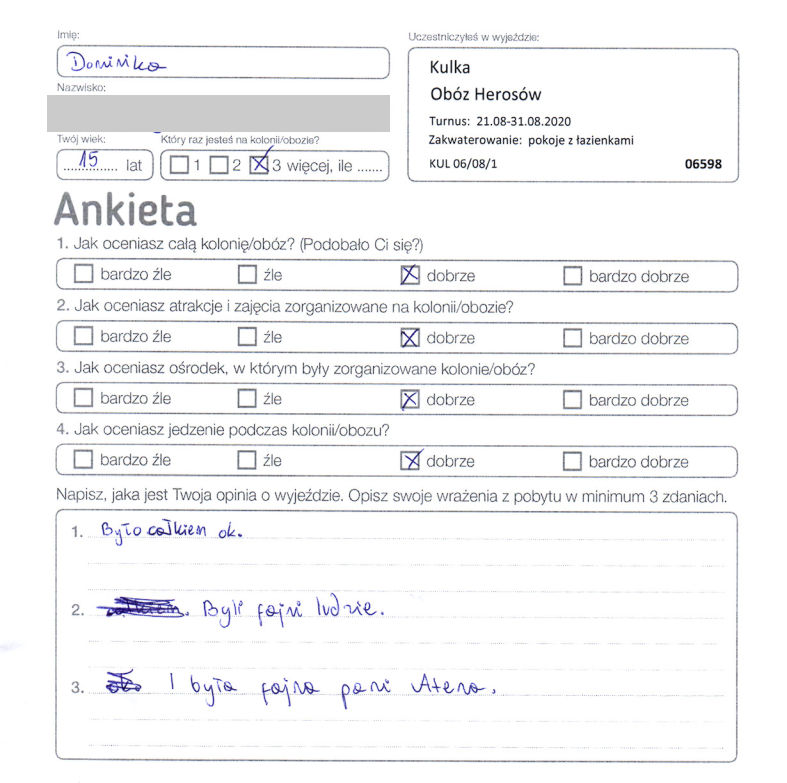 Imię:
Dominika
Nazwisko:
Twój wiek:
15 lat
Który raz jesteś na kolonii/obozie?
1 2 3 więcej, ile .......
Uczestniczyłeś w wyjeździe:
Kulka
Obóz Herosów
Turnus: 21.08-31.08.2020
Zakwaterowanie: pokoje z łazienkami
KUL 06/08/1 06598
Ankieta
1. Jak oceniasz całą kolonię/obóz? (Podobało Ci się?)
bardzo źle źle dobrze bardzo dobrze
2. Jak oceniasz atrakcje i zajęcia zorganizowane na kolonii/obozie?
bardzo źle źle dobrze bardzo dobrze
3. Jak oceniasz ośrodek, w którym były zorganizowane kolonie/obóz?
bardzo źle źle dobrze bardzo dobrze
4. Jak oceniasz jedzenie podczas kolonii/obozu?
bardzo źle źle dobrze bardzo dobrze
Napisz, jaka jest Twoja opinia o wyjeździe. Opisz swoje wrażenia z pobytu w minimum 3 zdaniach.
1. Było całkiem ok.
2. Byli fajni ludzie.
3. I była fajna pani Atena.